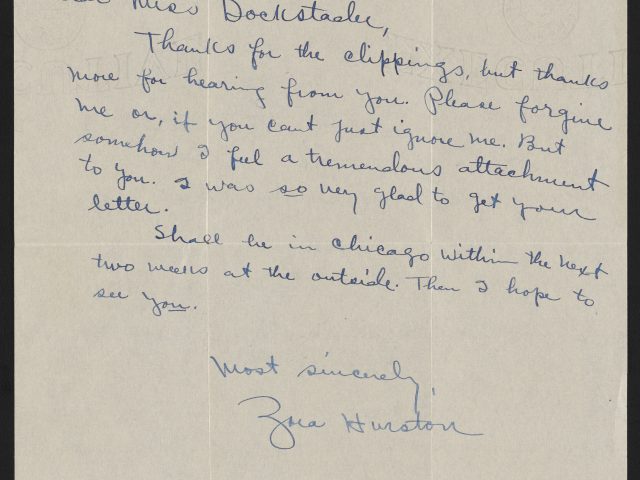 Miss Dockstader,
Thanks for the clippings, but thanks
more for hearing from you. Please forgive
me or, if you cant just ignore me. But
somehow I feel a tremendous attachment
to you. I was so very glad to get your
letter.
Shall be in Chicago within the next
two weeks at the outside. Then I hope to
see you.
Most sincerely,
Zora Hurston